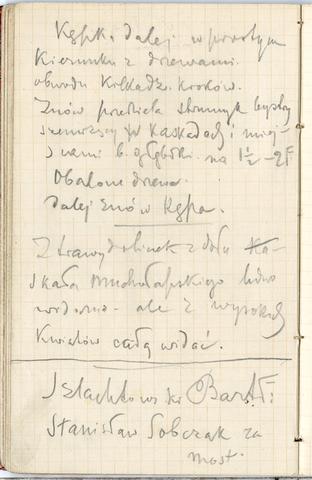 Kępka. Dalej w prostym
kierunku z drzewami
obwodu kilkadz. kroków.
Znów przecieka strumyk bystry
szemrzący w kaskadach i miej-
scami b. głęboki. na 1½ – 2 F
Obalone drzewa.
Dalej znów Kępa.
Z trawy dolinek z dołu
skała Muchołapskiego ledwo
widoma – ale z wysokich
Kwiatów całą widać.
Szlachtowski Bartł:
Stanisław Sobczak za
most.